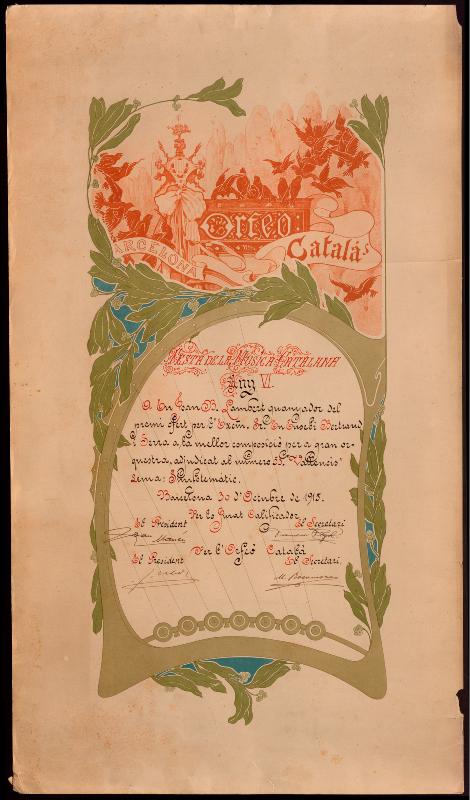 Orfeó
Català
BARCELONA
FESTA DE LA MÚSICA CATALANA
Any VI
A En Joan B. Lambert guanyador del
premi ofert per l'Excm. Sr. En Eusebi Bertrand
i Serra a la mellor composisió per a gran or-
questra, adjudicat al número 55.
Lema: Simbolemàtic.
Barcelona 30 d'Octubre de 1915.
Per lo Jurat Calificador
El President El Secretari
Per l'Orfeó Català
El President El Secretari.